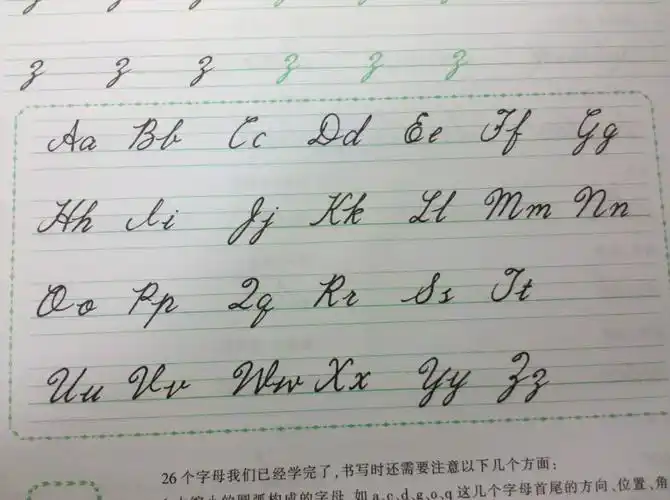 z z z z z z
Aa Bb Cc Dd Ee Ff Gg
Hh Ii Jj Kk Ll Mm Nn
Oo Pp Qq Rr Ss Tt
Uu Vv Ww Xx Yy Zz
26个字母我们已经学完了,书写时还需要注意以下几个方面:
的圆弧构成的字母,如a、c、d、g、o、q这几个字母首尾的方向、位置、角